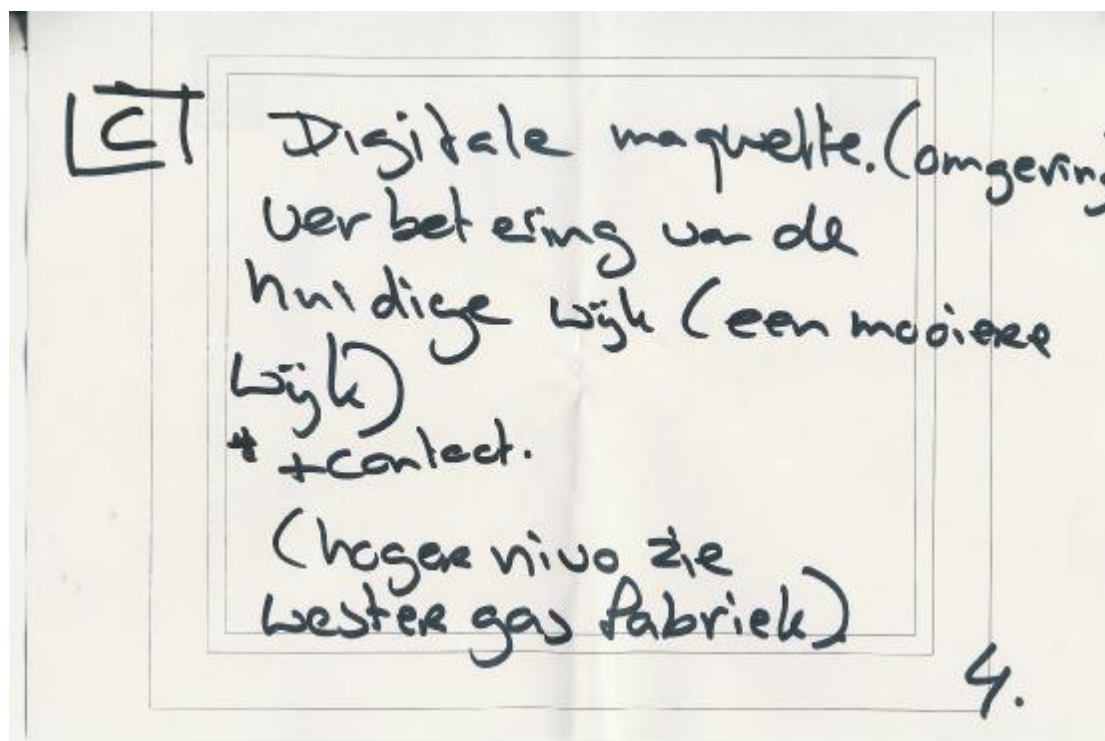 C Digitale maquette. (omgeving)
verbetering van de
huidige wijk (een mooiere
wijk)
* + contact.
(hogere nivo zie
wester gas fabriek)
4.